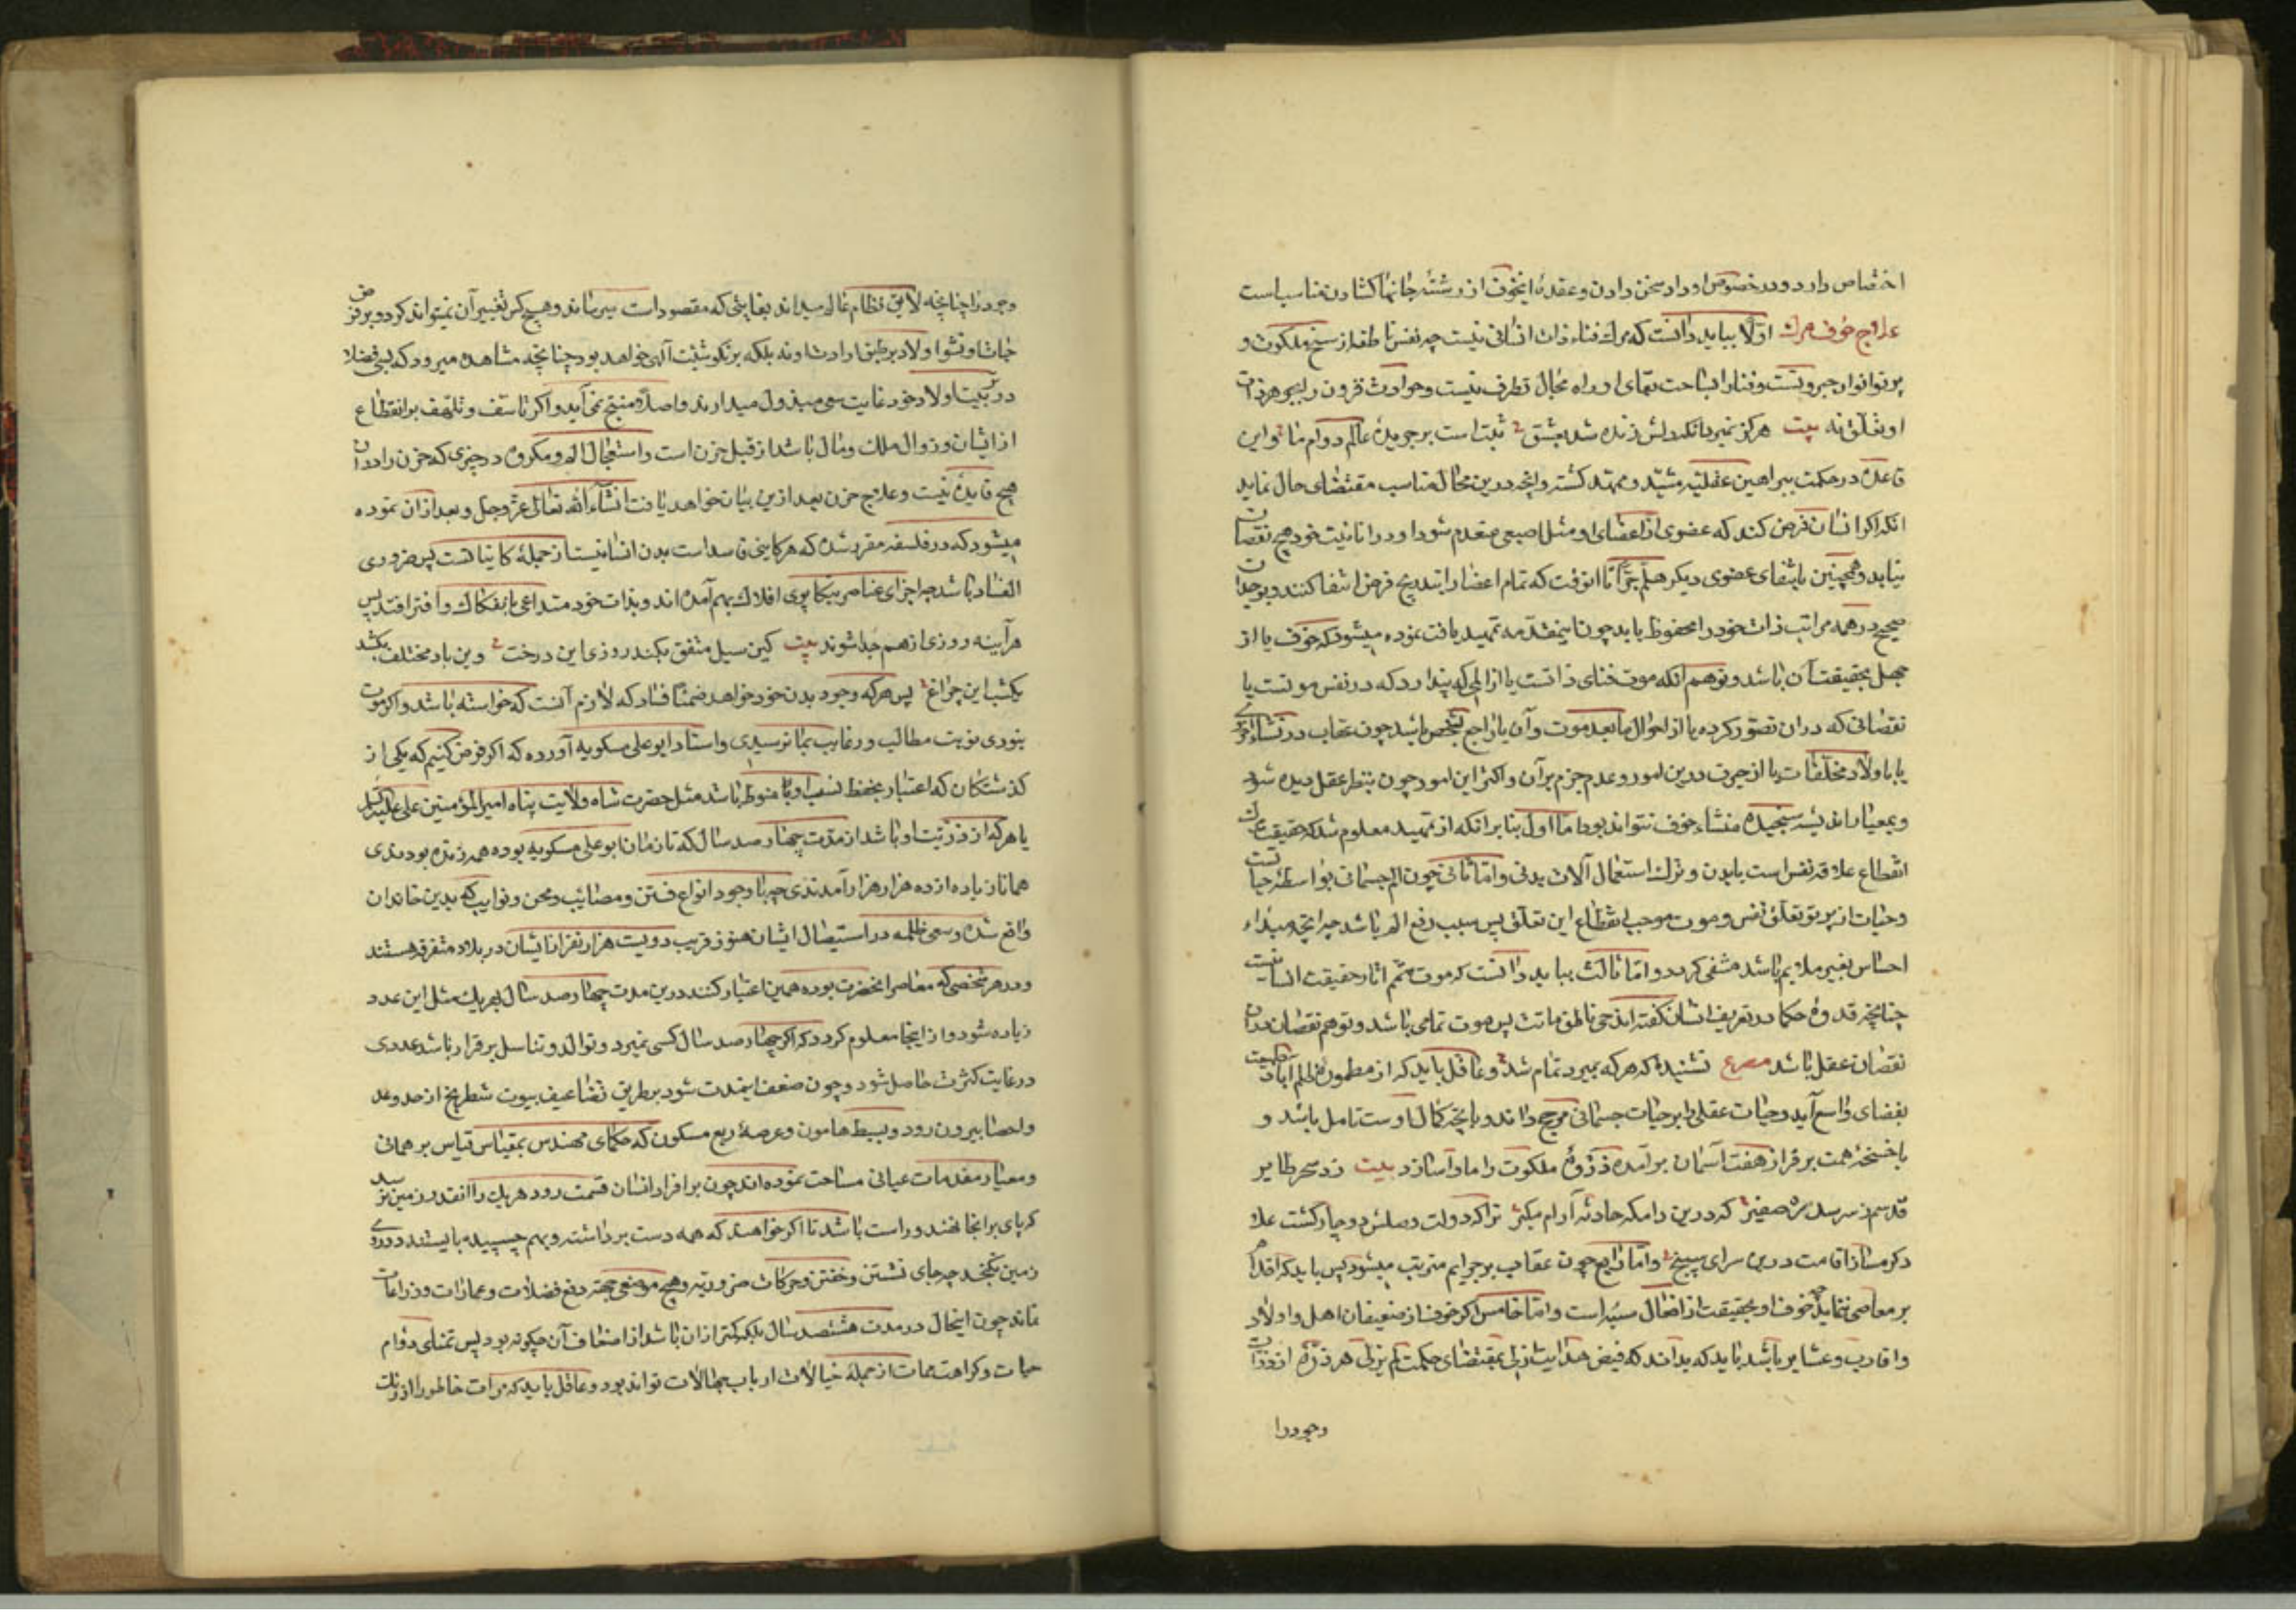 اختصاص دارد و در خصوص او داد سخن دادن و عقدهٔ اینخوف از رشتهٔ جانها کشادن مناسب است
علاج خوف مرک اوّلا بباید دانست که مرک فناء ذات انسانی نیست چه نفس ناطقه از سنخ ملکوت و
پرتو انوار جبروتست و فنا را بساحت بقای او راه مجال تطرف نیست و حوادث قرون را بجوهر ذات
او تعلّق نه بیت هرکز نمیرد آنکه دلش زنده شد بعشق ثبت است بر جریدهٔ عالم دوام ما و این
قاعده در حکمت ببراهین عقلیّه مشیّد و ممهّد کشته و آنچه درین محال مناسب مقتضای حال نماید
انکه اکر انسان فرض کند که عضوی از اعضای او مثل اصبعی منعدم شود او در انانیت خود هیچ نقصان
نیابد و همچنین بانتفای عضوی دیکر هلمّ جرّا تا انوقت که تمام اعضا را بتدریج فرض انتفا کنند و بوجدان
صحیح در همه مراتب ذات خود را محفوظ یابد چون اینمقدّمه تمهید یافت نموده میشود که خوف یا از
جهل بحقیقت آن باشد و توهم انکه موت فنای ذاتست یا از المی که پندارد که در نفس موتست یا
نقصانی که دران تصوّر کرده یا از احوال ما بعد موت و آن یا راجع بشخص باشد چون عقاب در نشاء اخری
یا با ولاد و مخلّفات یا از حیرت درین امور و عدم جزم بر آن و اکثر این امور چون بنظر عقل دیده شود
و بمعیار اندیشه سنجیده منشاء خوف نتواند بود اما اول بنا بر انکه از تمهید معلوم شد که حقیقت مرک
انقطاع علاقه نفس است ببدن و ترک استعمال آلات بدنی و امّا ثانی چون الم جسمانی بواسطهٔ حیاتست
و حیات از پرتو تعلّق نفس و موت موجب انقطاع این تعلّق پس سبب رفع الم باشد چه انچه مبداء
احساس بغیر ملایم باشد منتفی کردد و امّا ثالث بباید دانست که موت متمّم اثار حقیقت انسانیست
چنانچه قدوهٔ حکما در تعریف انسان کفته اند حی ناطق مائت پس موت تمامی باشد و توهم نقصان دران
نقصان عقل باشد مصرع نشنیدهٔ که هرکه بمیرد تمام شد و عاقل باید که از مطموره ظلم آباد طبیعت
بفضای واسع آید و حیات عقلی را بر حیات جسمانی مرجح داند و بانچه کمال اوست متامل باشد و
باجنحهٔ همت بر فراز هفت آسمان برآمده ذروهٔ ملکوت را ماوآ سازد بیت زد سحر طایر
قدسم ز سر سدره صفیر که درین دامکه حادثه آرام مکیر
دکر مساز اقامت درین سرای سپنج و امّا رابع چون عقاب بر جرایم مترتب میشود پس باید که اقدام
بر معاصی ننماید چه خوف او بحقیقت از افعال سیّئه است و امّا خامس اکر خوف از ضعیفان اهل و اولاد
و اقارب و عشایر باشد باید که بداند که فیض هدایت ازلی بمقتضای حکمت لم یزلی هر ذرّهٔ از ذرات
وجود را
وجود را چنانچه لایق نظام عالم میداند بغایتی که مقصود است میرساند و هیچ کس تغییر آن نمیتواند کرد و بر فرض
حیات او نشو اولاد بر طبق ارادت او نه بلکه بر نکو مشیّت آلهی خواهد بود چنانچه مشاهده میرود که بسی فضلا
در تربیت اولاد خود غایت سعی مبذول میدارند و اصلا منتج نمی آید و اکر تاسّف و تلهّف بر انقطاع
از ایشان و زوال ملک و مال باشد از قبیل حزن است و استعجال الم و مکروه در چیزی که حزن را دران
هیچ فایدهٔ نیست و علاج حزن بعد ازین بیان خواهد یافت انشآء الله تعالی عزّ و جلّ و بعد ازان نموده
میشود که در فلسفه مقرر شده که هر کاینی فاسد است بدن انسانیست از جملهٔ کایناتست پس ضروری
الفساد باشد چه اجزای عناصر بتکاپوی افلاک بهم آمده اند و بذات خود متداعی بانفکاک و افتراقند پس
هرآینه روزی از هم جدا شوند بیت کین سیل متفق بکند روزی این درخت وین باد مختلف بکشد
یکشب این چراغ پس هرکه وجود بدن خود خواهد ضمنا فساد که لازم آنست که خواسته باشد و اکر موت
نبودی نوبت مطالب و رغایب بما نرسیدی و استاد ابو علی مسکویه آورده که اکر فرض کنیم که یکی از
کذشتکان که اعتبار بحفظ نسب او تا منوط باشد مثل حضرت شاه ولایت پناه امیر المؤمنین علی علیه السلام
با هرکه از ذریّت او باشد از مدّت چهارصد سال که تا زمان ابو علی مسکویه بوده همه زنده بودندی
همانا زیاده از ده هزار هزار آمدندی چه با وجود انواع فتن و مصائب و محن و نوایب که بدین خاندان
واقع شده و سعی ظلمه در استیصال ایشان هنوز قریب دویست هزار نفر از ایشان در بلاد متفرقه هستند
و در هر شخصی که معاصر انحضرت بوده همین اعتبار کنند درین مدت چهارصد سال بهر یک مثل این عدد
زیاده شود و از اینجا معلوم کردد که اکر چهارصد سال کسی نمیرد و توالد و تناسل برقرار باشد عددی
در غایت کثرت حاصل شود و چون ضعف اینمدت شود بر طریق تضاعیف بیوت شطرنج از حدّ و عد
و احصا بیرون رود و بسیط هامون و عرصهٔ ربع مسکون که حکمای مهندس بمقیاس قیاس برهانی
و معیار مقدمات عیانی مساحت نموده اند چون بر افراد انسان قسمت رود هر یک را انقدر زمین نرسد
که پای بر انجا نهند و راست باشد تا اکر خواهند که همه دست برداشته و بهم چسپیده بایستند در روی
زمین نکنجند چه جای نشستن و خفتن و حرکات ضروریه و هیچ موضعی جهة دفع فضلات و عمارات و زراعات
نماند چون اینحال در مدت هشتصد سال بلکه کمتر ازان باشد از اضعاف آن چکونه بود پس تمنای دوام
حیات و کراهت ممات از جملهٔ خیالات ارباب جهالات تواند بود و عاقل باید که مرآت خاطر را از